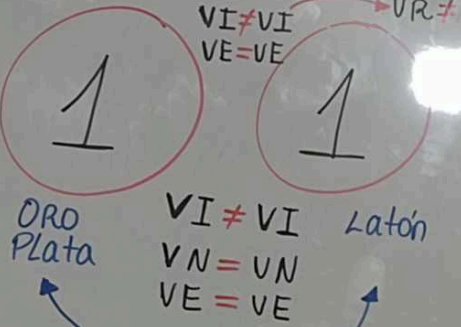 VI≠VI
VR≠
VE=VE
1
1
ORO
Plata
VI ≠ VI
VN = VN
VE = VE
Latón